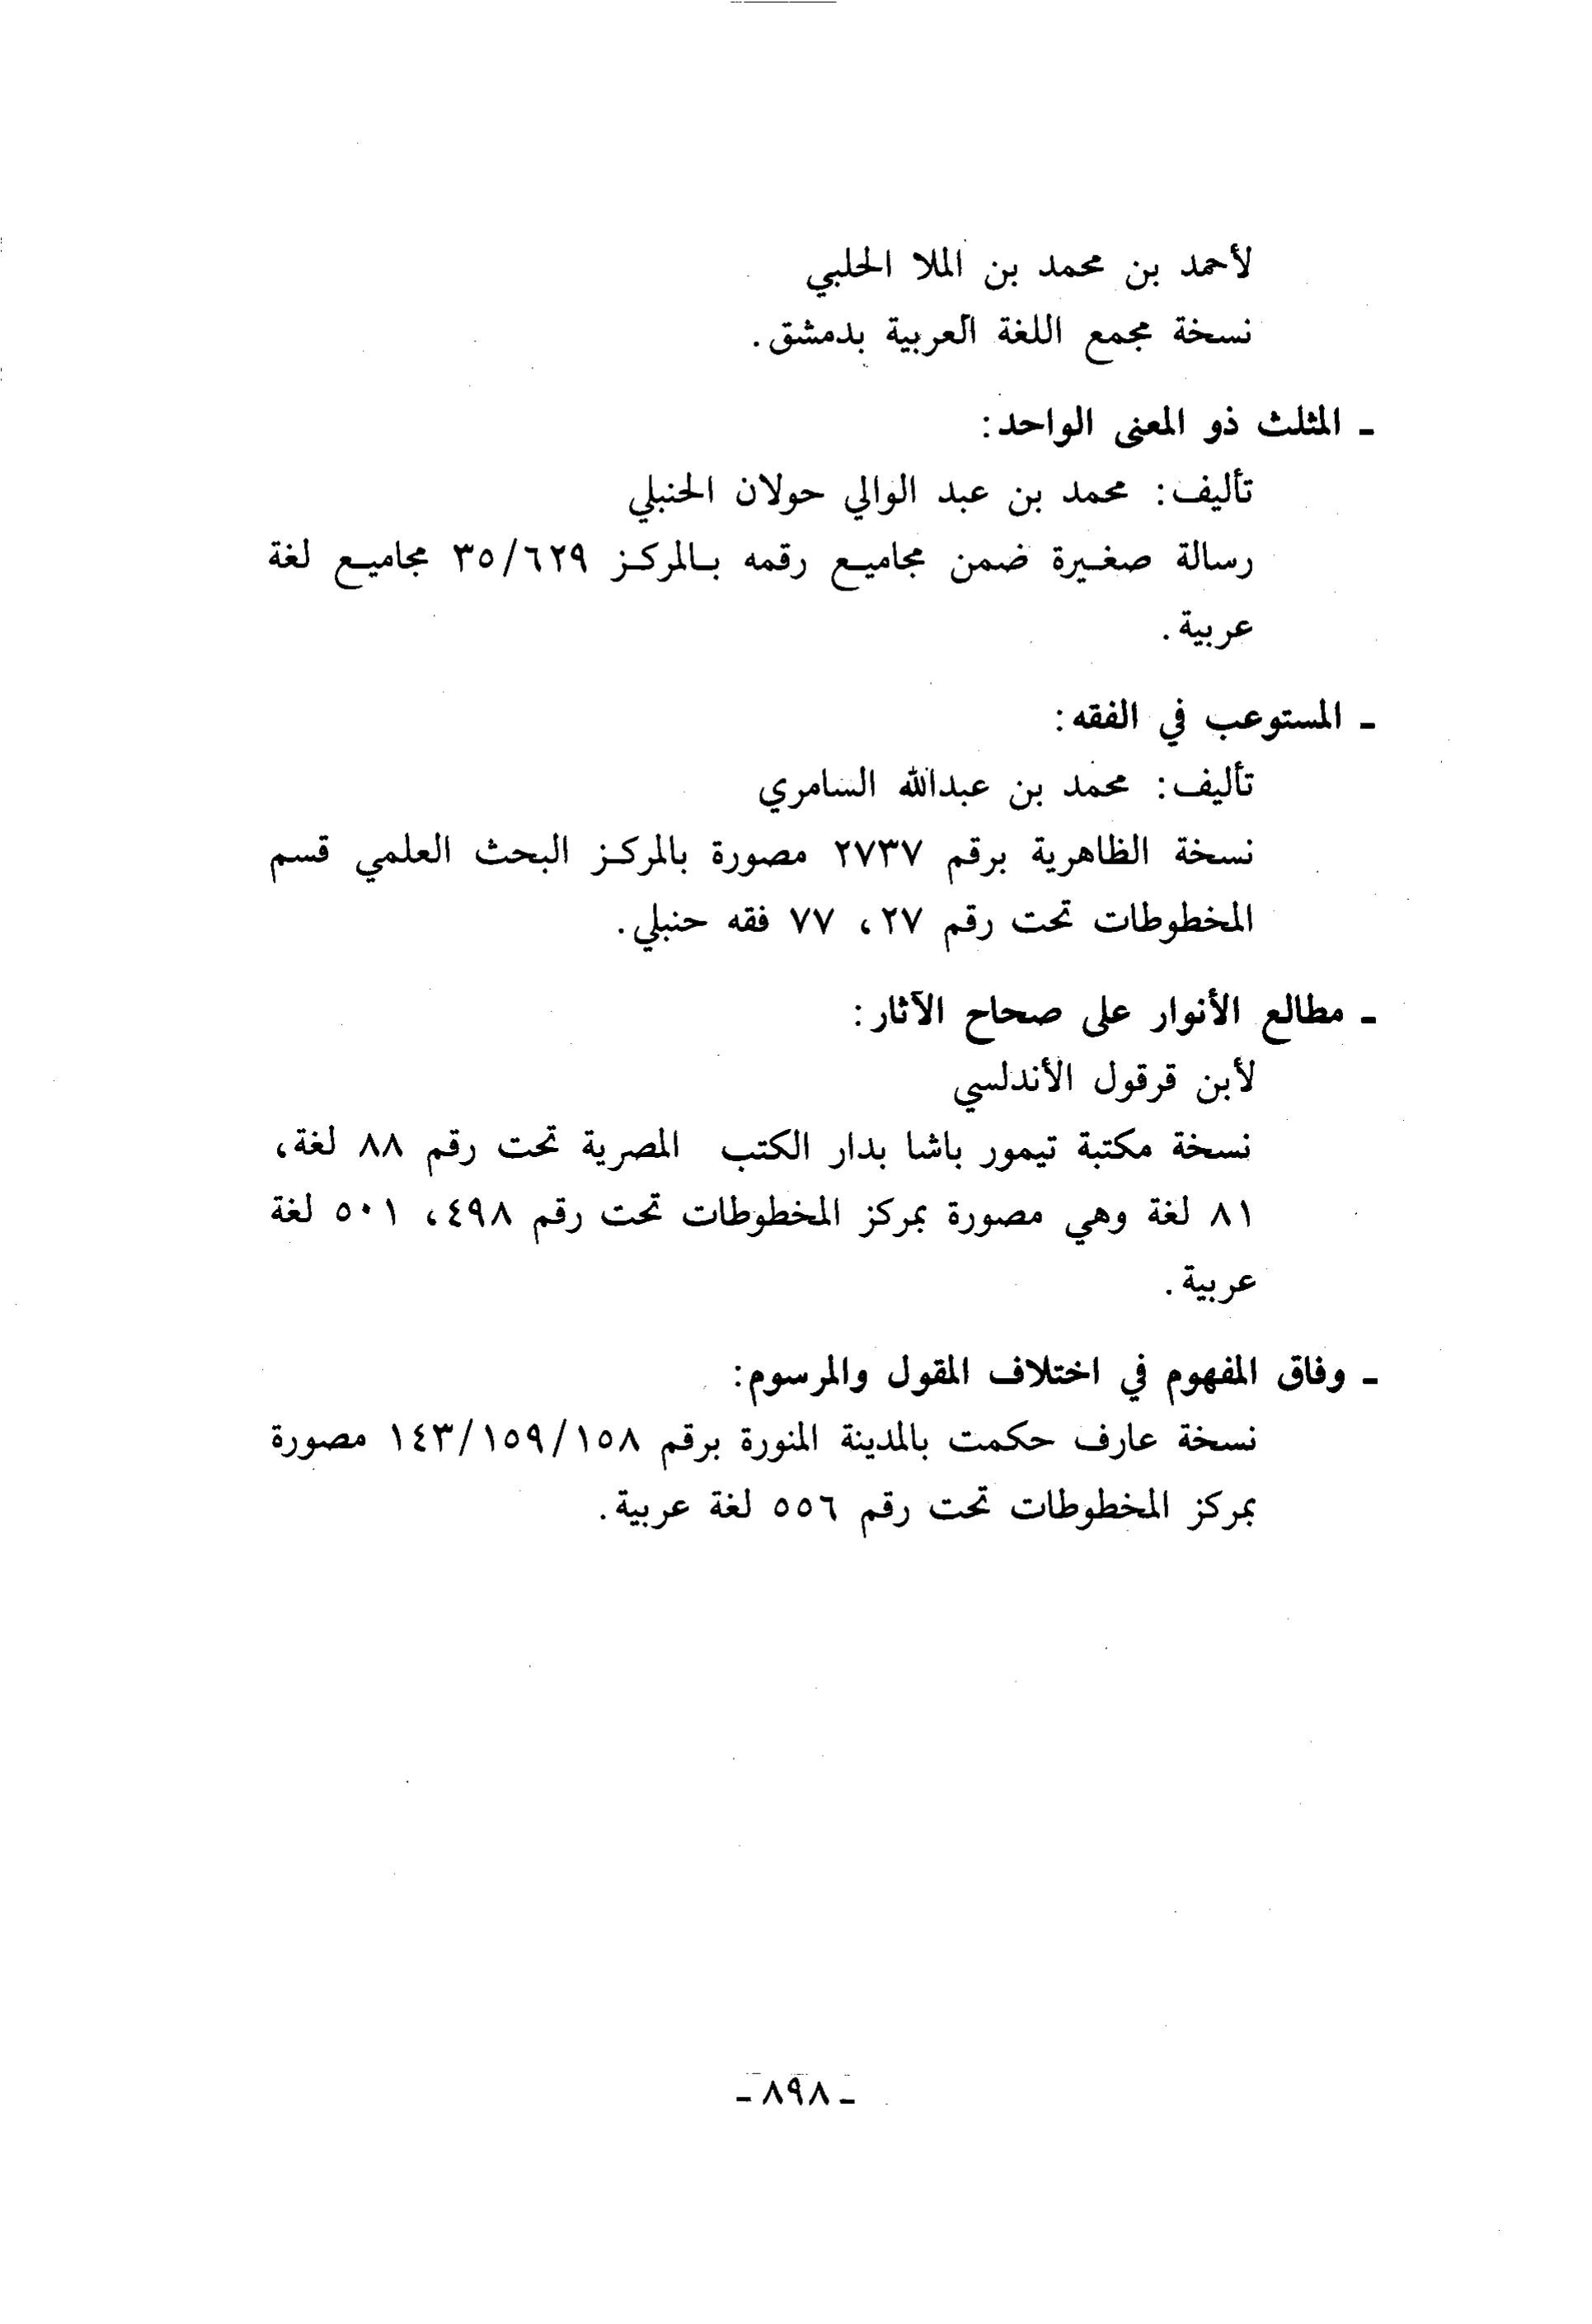 لأحمد بن محمد بن الملا الحلبي
نسخة مجمع اللغة العربية بدمشق.
ـ المثلث ذو المعنى الواحد:
تأليف: محمد بن عبد الوالي حولان الحنبلي
رسالة صغيرة ضمن مجاميع رقمه بالمركز ٣٥/٦٢٩ مجاميع لغة
عربية.
ـ المستوعب في الفقه:
تأليف: محمد بن عبدالله السامري
نسخة الظاهرية برقم ٢٧٣٧ مصورة بالمركز البحث العلمي قسم
المخطوطات تحت رقم ٢٧، ٧٧ فقه حنبلي.
ـ مطالع الأنوار على صحاح الآثار:
لأبن قرقول الأندلسي
نسخة مكتبة تيمور باشا بدار الكتب المصرية تحت رقم ٨٨ لغة،
٨١ لغة وهي مصورة بمركز المخطوطات تحت رقم ٤٩٨، ٥٠١ لغة
عربية.
ـ وفاق المفهوم في اختلاف المقول والمرسوم:
نسخة عارف حكمت بالمدينة المنورة برقم ١٤٣/١٥٩/١٥٨ مصورة
بمركز المخطوطات تحت رقم ٥٥٦ لغة عربية.
ـ ٨٩٨ ـ